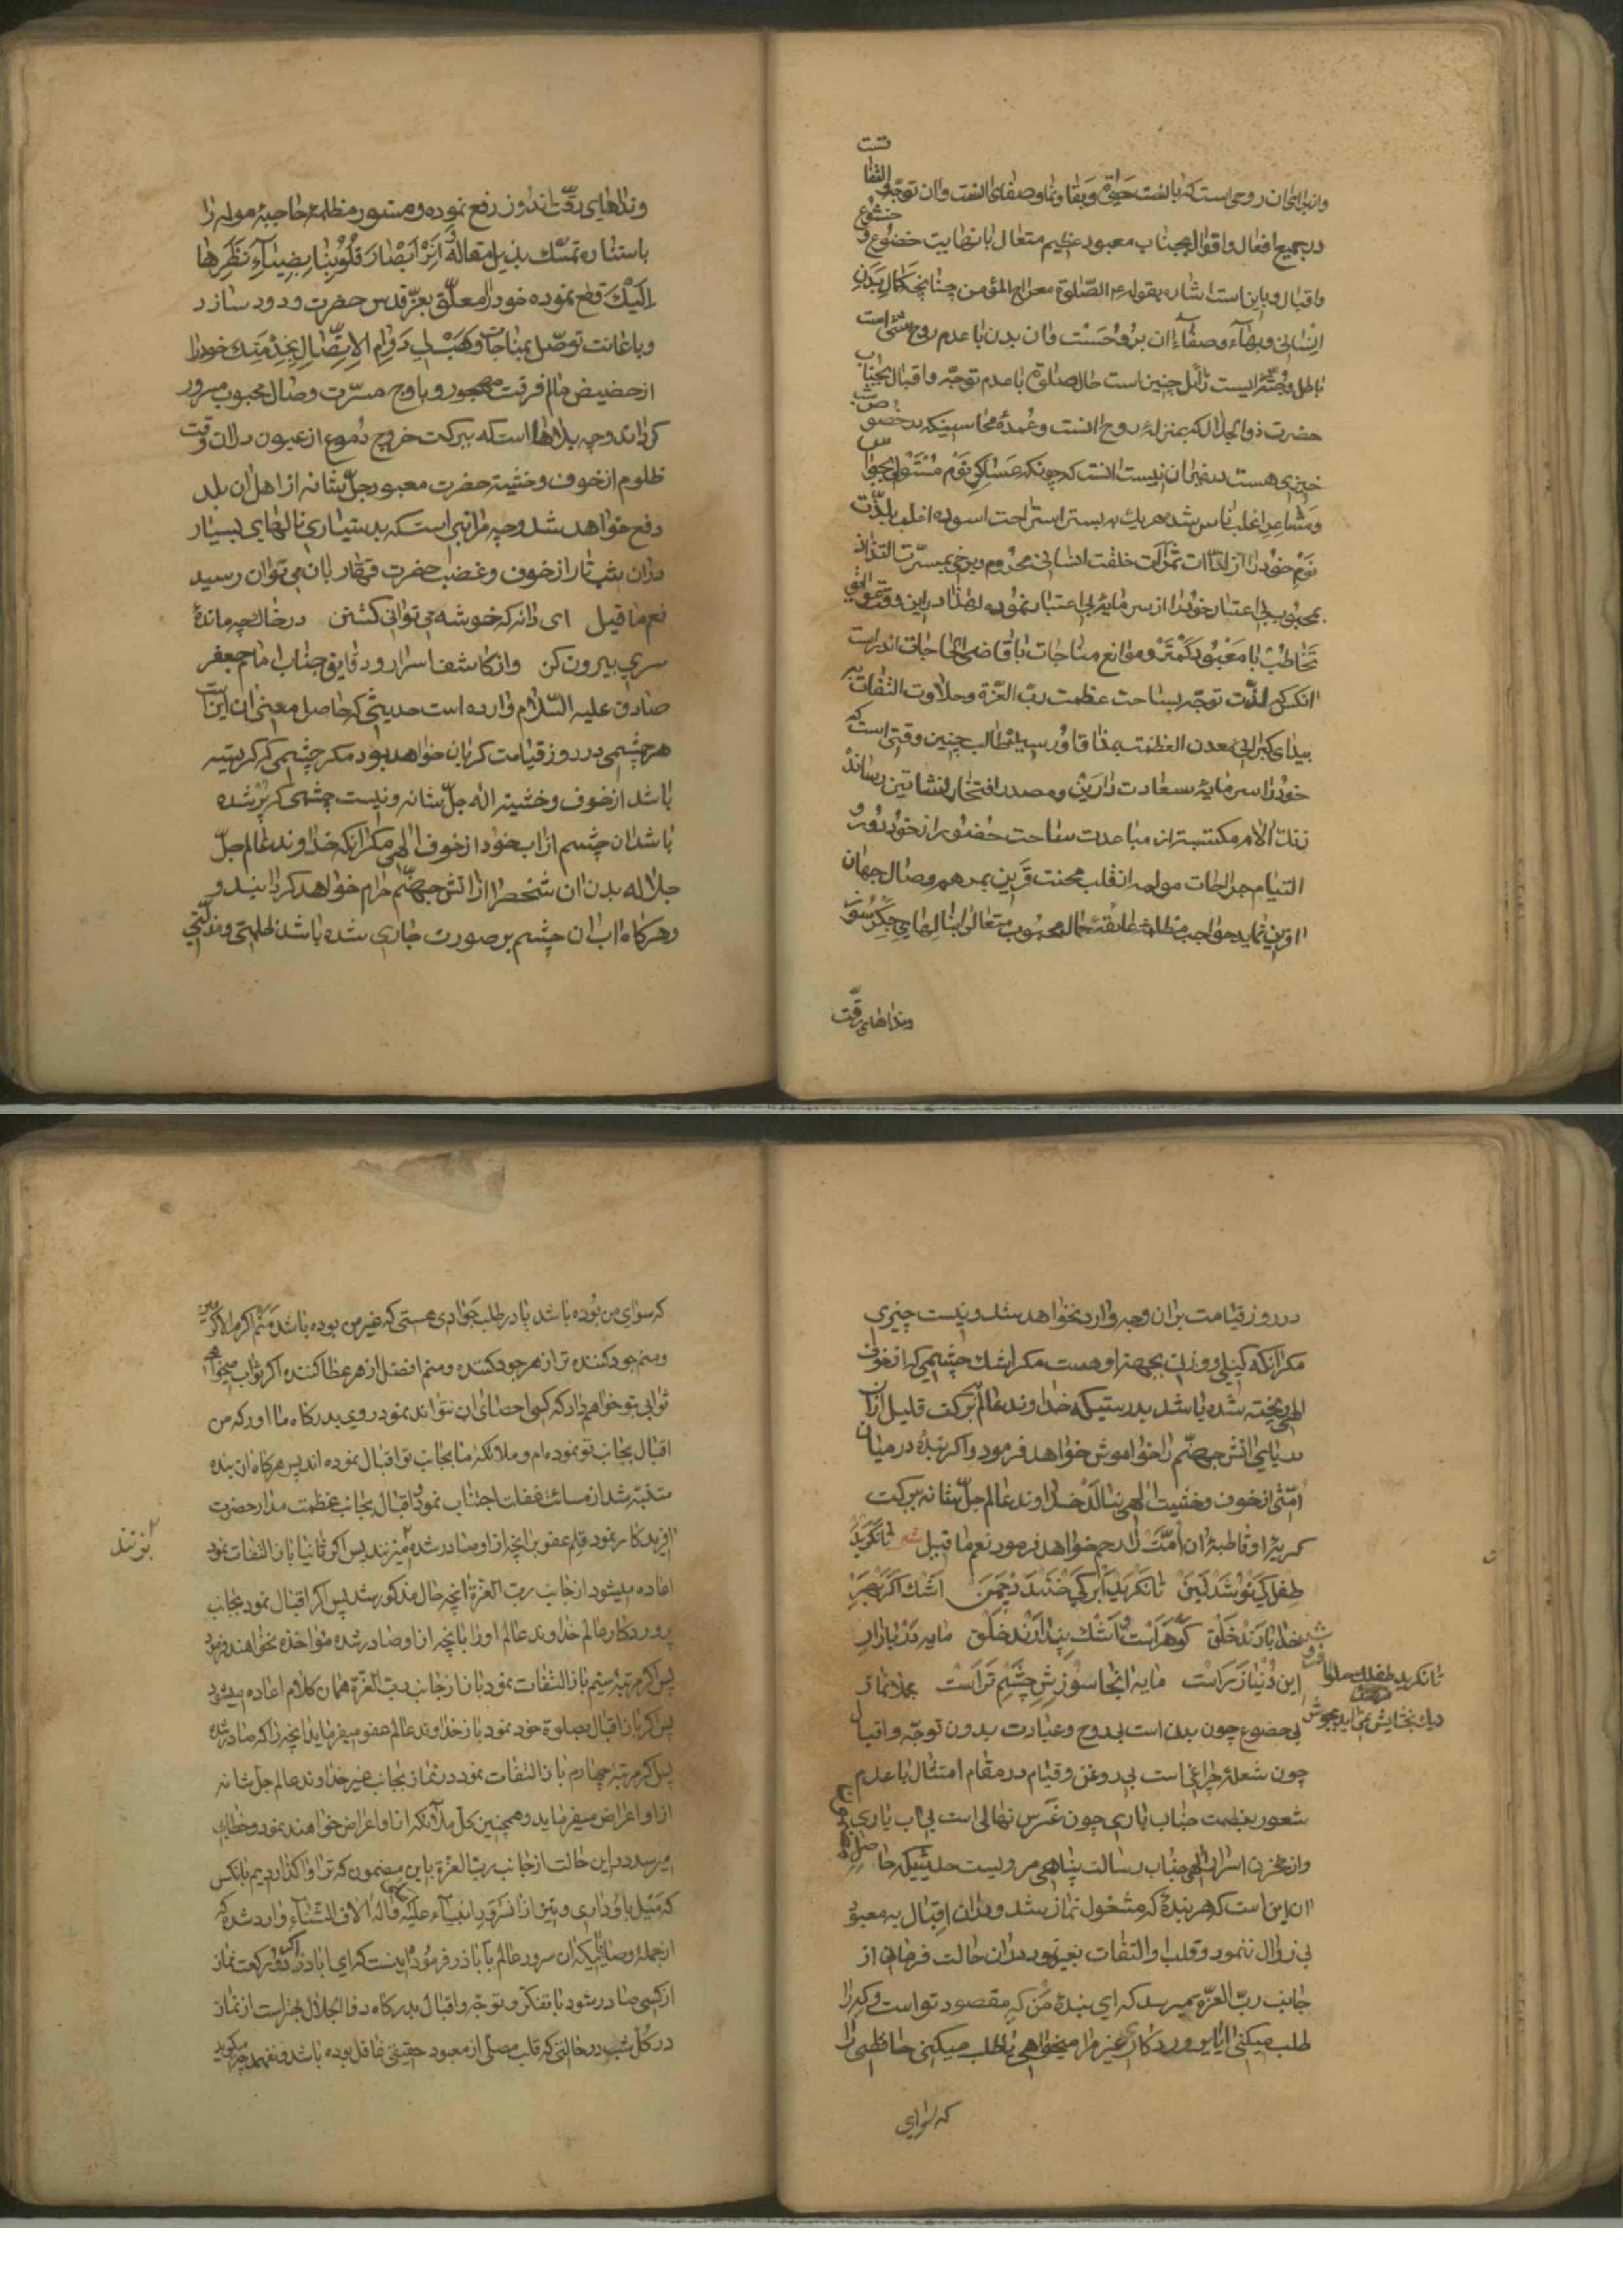 وانبرای ان روحی است که با نست حیوة و بقا و نما و صفای انست وان توجه و التفا تست
در جمیع افعال و اقوال بجناب معبود عظیم متعال با نهایت خضوع و خشوع
و اقبال و باین است اشاره بقوله ع م الصّلوة معراج المؤمن چنانچه کمال بدن
انسانی و بهاء و صفاء ان بروحست و ان بدن با عدم روح شئ است
باطل و جثّه ایست زائل چنین است حال صلوة با عدم توجّه و اقبال بجناب
حضرت ذوالجلال که بمنزله روح انست و عمدهٔ محاسنیکه در خصوص شب
خیزی هست در غیر ان نیست انست که چونکه عساکر نوم مستولی بحواس
و مشاعر اغلب ناس شده هر یک بر بستر استراحت اسوده اغلب بلذّت
نوم خود را از لذّات ثمرات خلقت انسانی محروم و برخی بمسرّت التذاذ
محبوب بی اعتبار خود را از سرمایهٔ بی اعتبار نموده لهذا در این وقت عوائق
تخاطب با معبود کمتر و موانع مناجات با قاضی الحاجات اندر است
انکس که لذّت توجّه بساحت عظمت ربّ العزّة و حلاوت التفات به
بیدای کبرایی معدن العظمة بمذاق او رسیده طالب چنین وقتی است که
خود را سرمایهٔ سعادت دارین و مصدر افتخار نشاتین رساند
زنک الام مکتسبه از مباعدت ساحت حضور از خود دور و
التیام جراحات مولمه از قلب محنت قرین بمرهم وصال جهان
افرین نماید حواجب مظلمه عایقهٔ جمال محبوب متعال را بنالهای جگرسوز
وندا های رقّت
وندا های رقّت اندوز رفع نموده و ستور مظلمه حاجبهٔ مولمه را
باستناره تمسّک بذیل مقالهٔ وَ اَنِرْ اَبْصارَ قُلُوْبِنا بِضِیٰآءِ نَظَرِها
اِلَیْکَ قطع نموده خود را معلّق بعزّ قدس حضرت ودود سازد
و باعانت توصّل بمناجات وَ هَبْ لی دَوامِ الاِتِّصالِ بِخِدْمَتِک خود را
از حضیض عالم فرقت مهجور و باوج مسرّت وصال محبوب مسرور
کرداند و چه بلاها است که ببرکت خروج دموع از عیون در ان وقت
ظلوم از خوف و خشیة حضرت معبود جلّ شانه از اهل ان بلد
دفع خواهد شد و چه مراتبی است که بدستیاری نالهای بسیار
دران شب تار از خوف و غضب حضرت قهّار بان می توان رسید
نعم ما قیل ای دانه که خوشه می توانی کشتن در خاک چه ماندهٔ
سری بیرون کن و از کاشف اسرار و دقایق جناب امام جعفر
صادق علیه السّلام وارد است حدیثی که حاصل معنی ان اینست
هر چشمی در روز قیامت کریان خواهد بود مکر چشمی که کریسته
باشد از خوف و خشیة الله جلّ شانه و نیست چشمی که پر شده
باشد ان چشم از اب خود از خوف الهی مکر انکه خداوند عالم جلّ
جلاله بدن ان شخص را از اتش جهنّم حرام خواهد کردانید و
و هر کاه اب ان چشم بر صورت جاری شده باشد ظلمتی و مذلّتی
در روز قیامت بران وجه وارد نخواهد شد و نیست چیزی
مکر انکه کیلی و وزنی بجهة او هست مکر اشک چشمی که از خوف
الهی ریخته شده باشد بدرستیکه خداوند عالم ببرکت قلیل از ان
دریایی اتش جهنّم را خواموش خواهد فرمود و اکر بندهٔ در میان
امّتی از خوف و خشیت الهی بنالد خداوند عالم جلّ شانه ببرکت
کریهٔ او قاطبهٔ ان امّت را رحم خواهد فرمود نعم ما قیل شعر تا نگرید
طفل کی نوشد لبن تا نگرید ابر کی خندد چمن اشک اکر بهر
خدا بارند خلق کوهر است و اشک پندارند خلق مایه در بازار
این دنیا زر است مایه انجا سوزش چشم تر است مجملا نماز
تا نکرید طفلک حلوا فروش
دیک بخشایش نمی اید بجوش
بی خضوع چون بدن است بی روح و عبادت بدون توجّه و اقبال
چون شعلهٔ چراغی است بی روغن و قیام در مقام امتثال با عدم
شعور بعظمت جناب باری چون غرس نهالی است بی اب یاری
و از مخزن اسرار الهی جناب رسالت پناهی مرویست حدیثیکه حاصل
ان این است که هر بندهٔ که مشغول نماز شد و دران اقبال به معبود
بی زوال ننمود و قلب او التفات بغیر نمود دران حالت فرمانی از
جانب ربّ العزّة میرسد که ای بندهٔ من که مقصود تو است و که را
طلب میکنی ایا پروردکاری غیر مرا میخواهی یا طلب میکنی حافظی را
که سوای
که سوای من بوده باشد یا در طلب جوادی هستی که غیر من بوده باشد منم اکرم الاکرمین
و منم جود کننده تر از هر جود کننده و منم افضل از هر عطا کننده اکر ثواب میخواهی
ثوابی بتو خواهم داد که کسی احصای ان نتواند نمود روی بدرکاه ما اور که من
اقبال بجانب تو نموده ام و ملائکه ما بجانب تو اقبال نموده اند پس هر کاه ان بنده
متنبّه شد از مسائت غفلت اجتناب نمود و اقبال بجانب عظمت مدار حضرت
افریدکار نمود قلم عفو بر انچه از او صادر شده میزنند پس اکر ثانیا باز التفات نمود
اعاده میشود از جانب ربّ العزّة انچه حال مذکور شد پس اکر اقبال نمود بجانب
پروردکار عالم خداوند عالم او را بانچه از او صادر شده مواخذه نخواهند فرمود
پس اکر مرتبهٔ سیّم باز التفات نمود باز از جانب ربّ العزّة همان کلام اعاده میشود
پس اکر باز اقبال بصلوة خود نمود باز خداوند عالم عفو میفرماید انچه را که صادر شده
پس اکر مرتبهٔ چهارم باز التفات نمود در نماز بجانب غیر خداوند عالم جلّ شانه
از او اعراض میفرماید و همچنین کل ملائکه از او اعراض خواهند نمود و خطاب
میرسد در این حالت از جانب ربّ العزّة باین مضمون که ترا واکذاردیم بانکس
که میل باو داری و نیز از اشرف انبیاء علیه و اله الاف الثناء وارد شده که
از جمله وصایائیکه ان سرور عالم باباذر فرموده اینست که ای اباذر اکر دو رکعت نماز
از کسی صادر شود با تفکّر و توجّه و اقبال بدرکاه ذوالجلال بهتر است از نماز
در کل شب در حالتی که قلب مصلّی از معبود حقیقی غافل بوده باشد و نفهمد چه میکوید